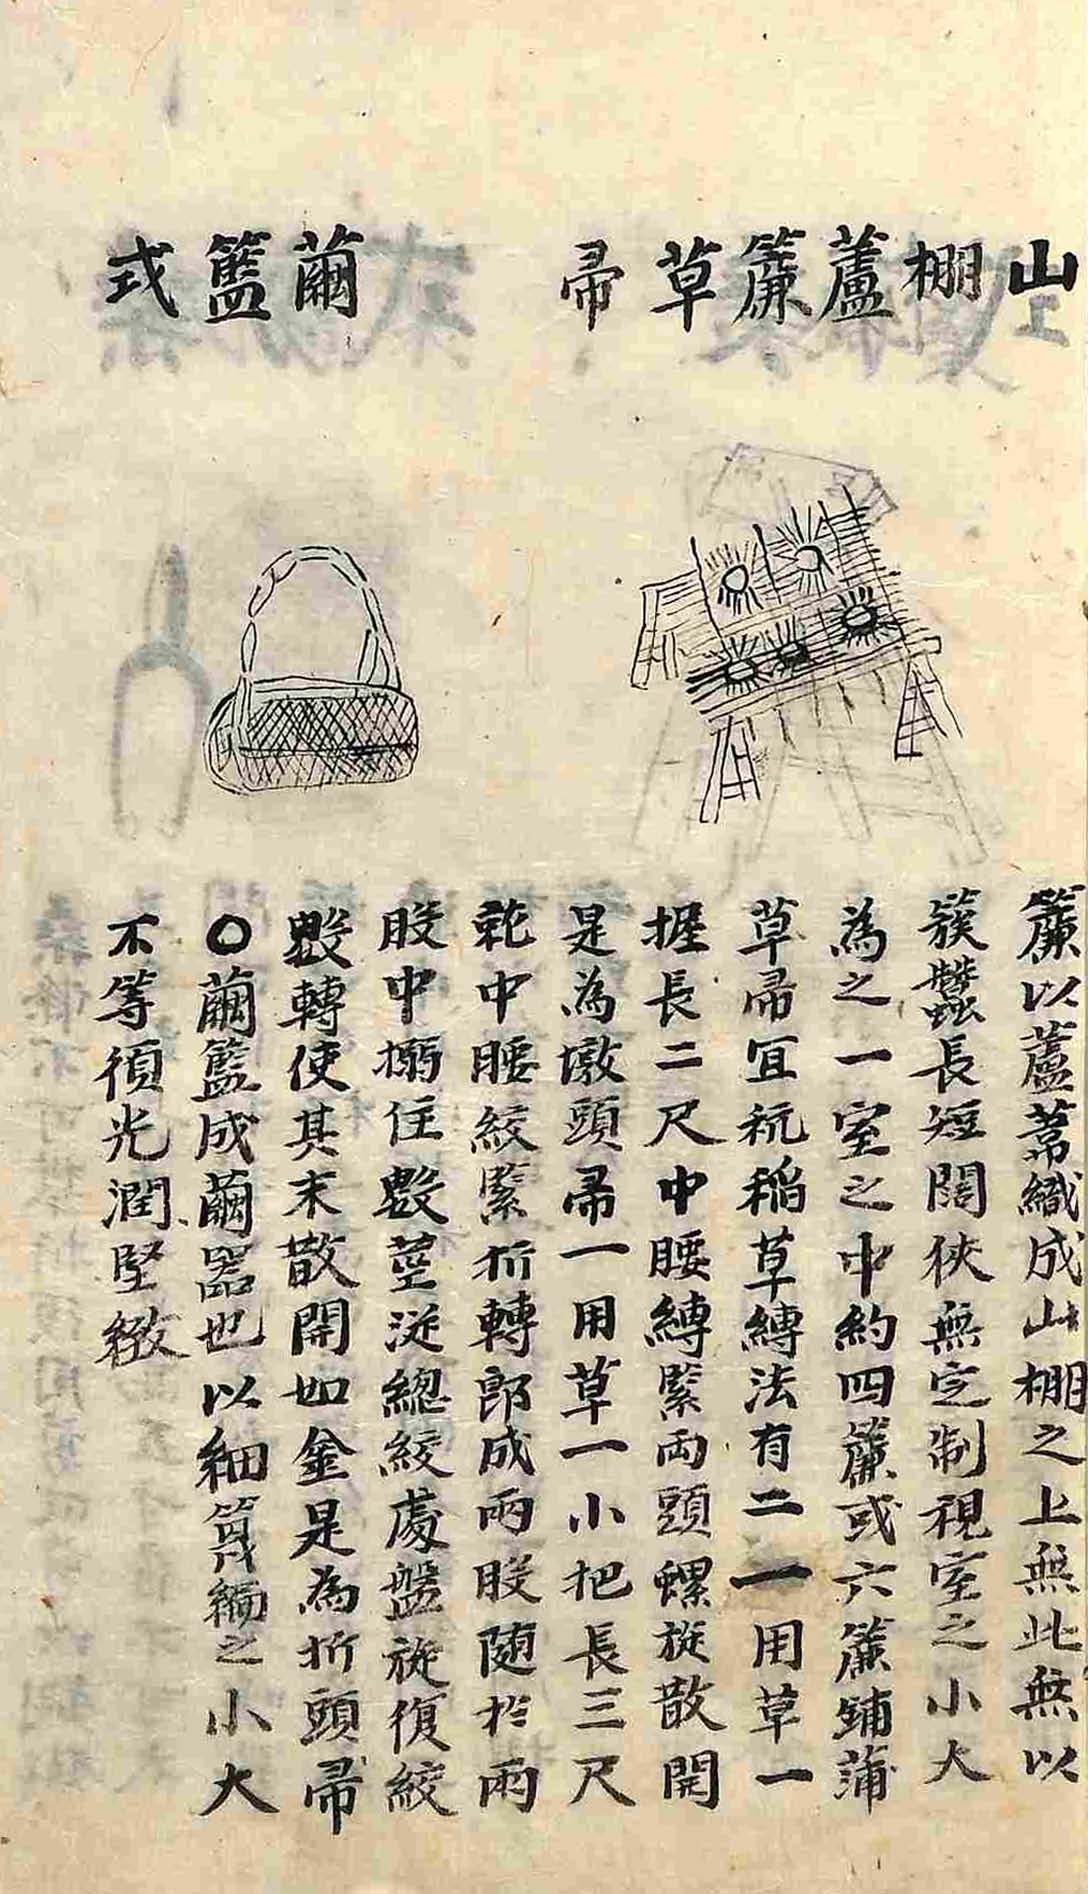 山棚蘆簾草帚
繭籃式
簾以蘆葦織成山棚之上無此無以
簇蠶長短闊狹無定制視室之小大
為之一室之中約四簾或六簾鋪蒲
草帚宜秔稻草縛法有二一用草一
握長二尺中腰縛緊両頭螺旋散開
是為墩頭帚一用草一小把長三尺
乾中腰絞緊折轉即成兩股随扵兩
股中搦住數莖從總絞處盤旋復絞
數轉使其末散開如金是為折頭帚
〇繭籃成繭器也以細篾緬之小大
不等須光潤堅緻